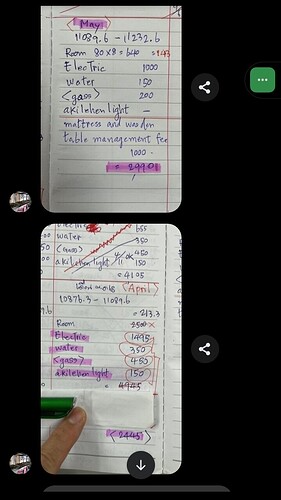 <May>
11089.6 - 11232.6
Room 80 x 8 = 640 = 143
Electric 1000
water 150
<gass> 200
akilehen light -
mattress and wooden
table management fee
1000.
= 2990
Electric 655
water 350
<gass> 450
akilehen light 150
= 4105
<April>
10876.3 - 11089.6
= 213.3
Room 2500 x
Electric 1495
water 350
<gass> 450
akilehen light 150
= 4945
<2445>